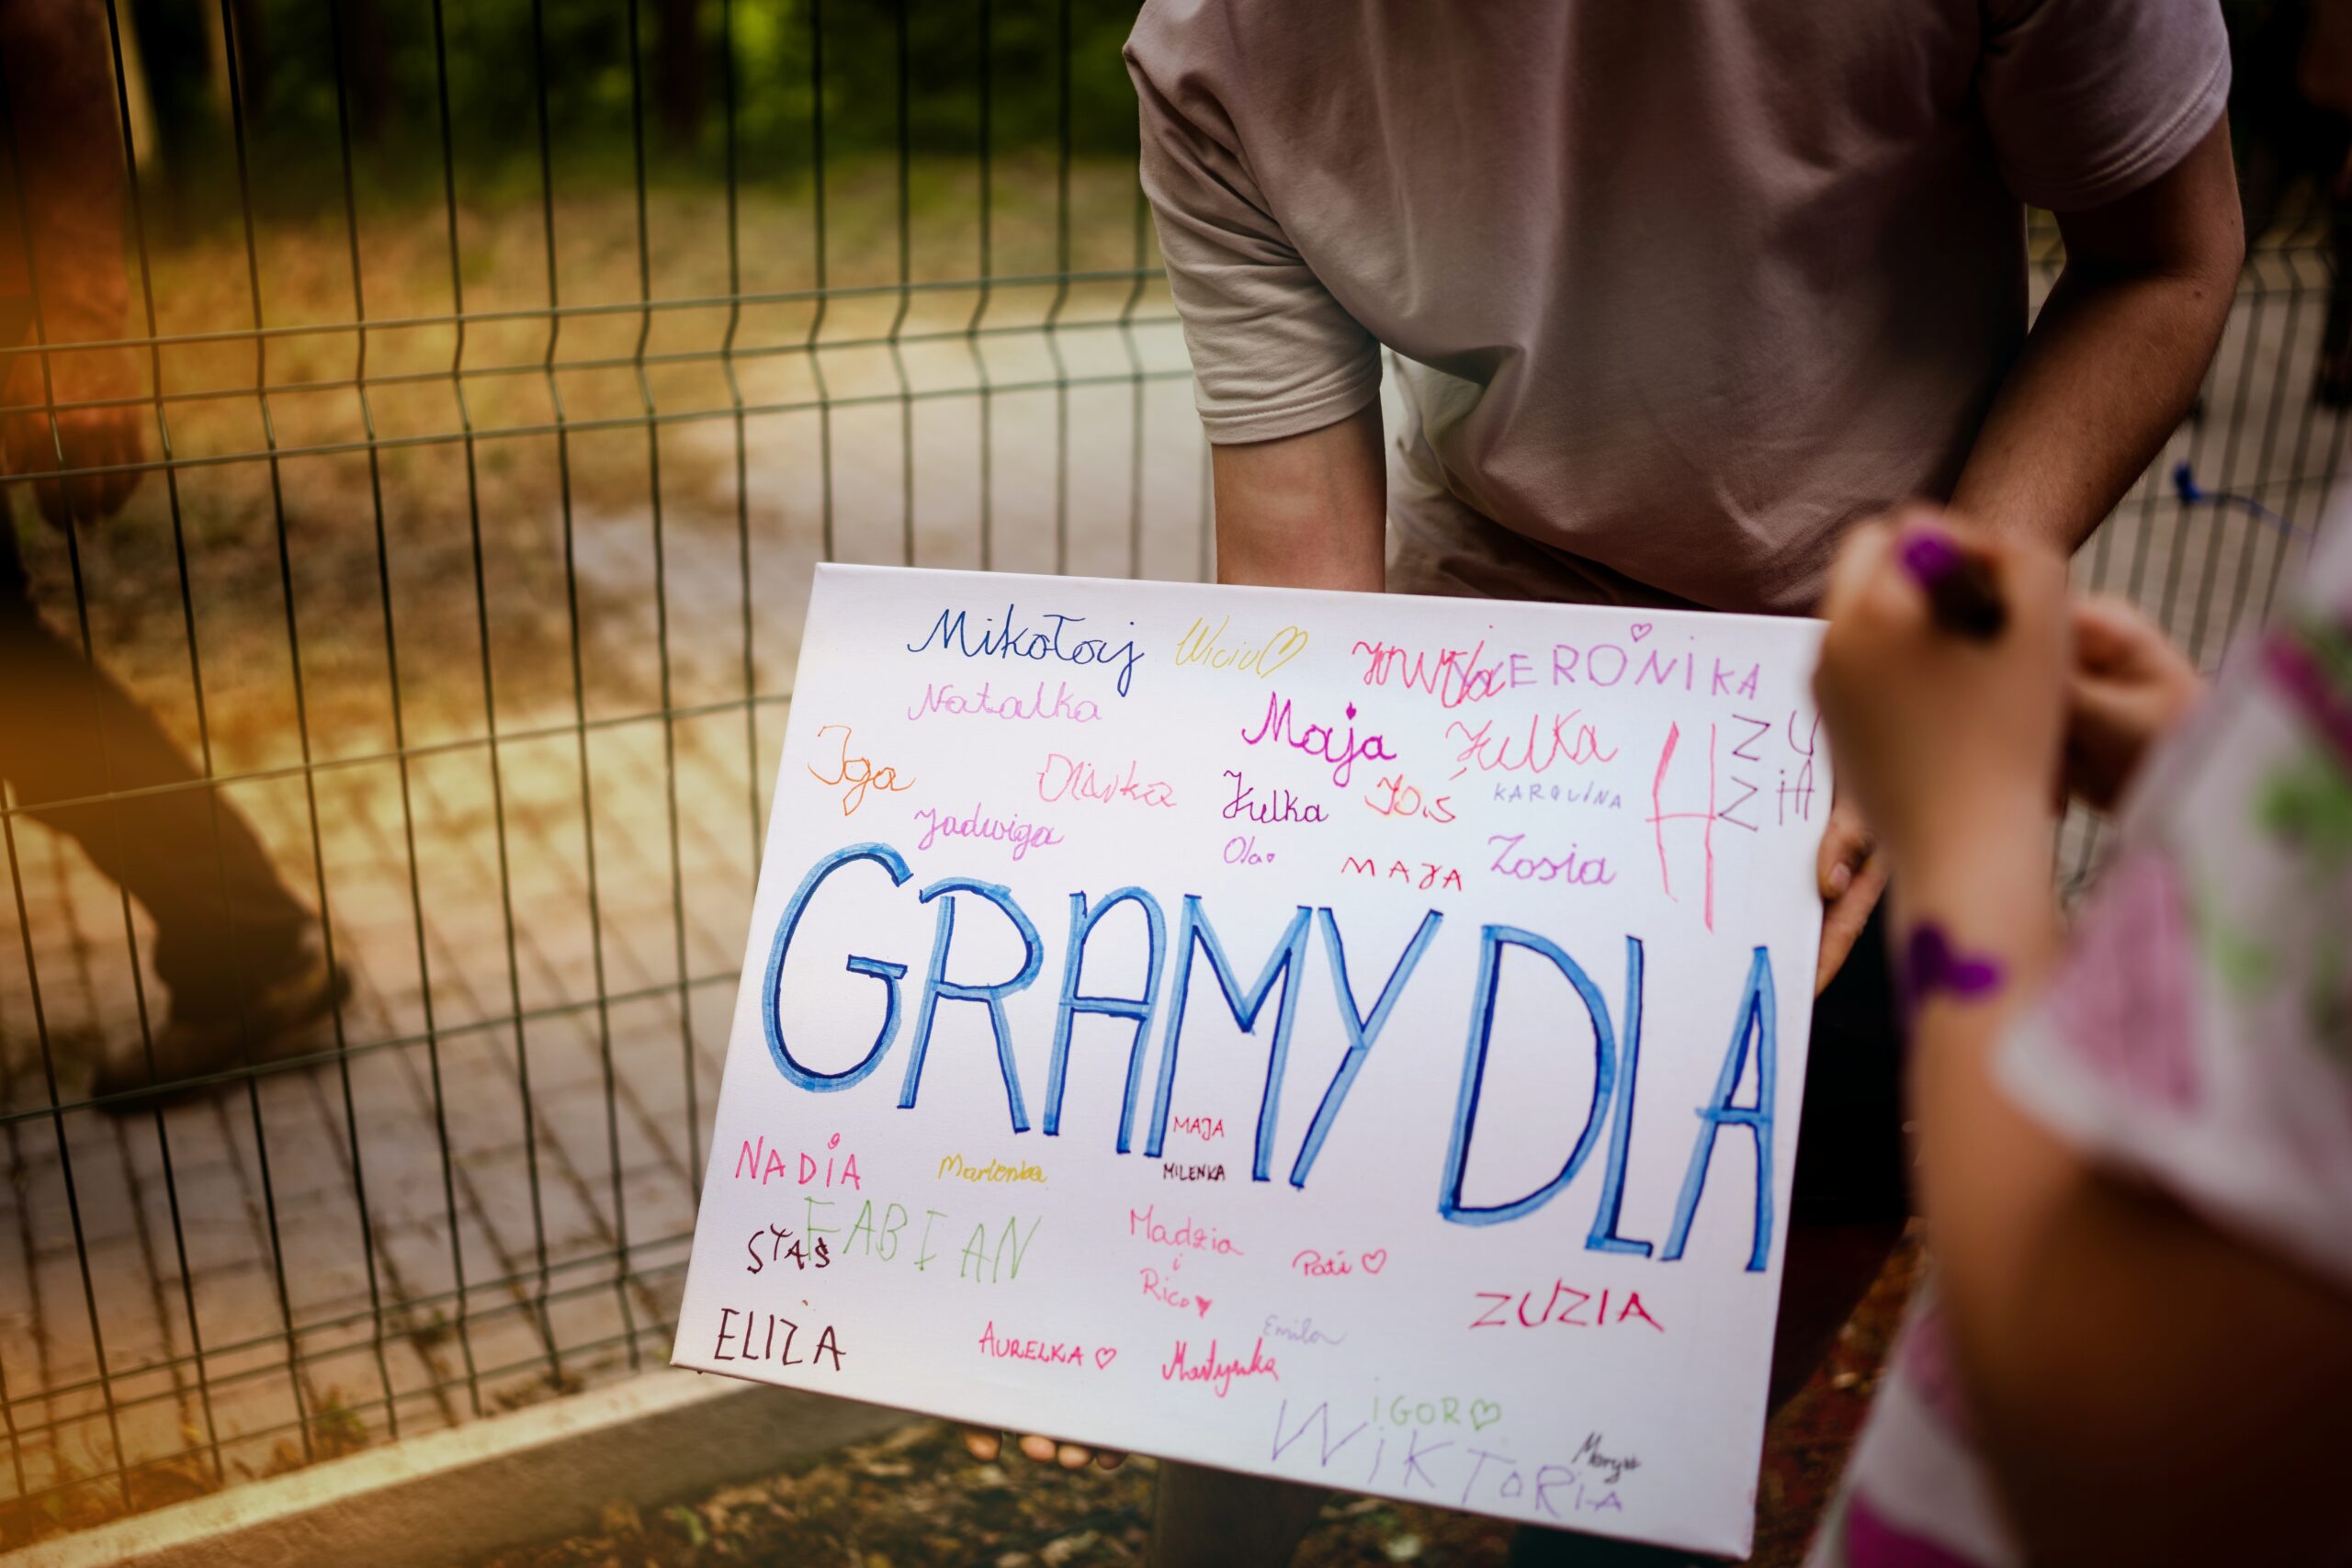 Mikołaj Wiciu♡
WERONIKA
Natalka
Maja Julka
ZU
ZIA
Iga Oliwka Julka
KAROLINA
Jadwiga Ola
MAJA Zosia
GRAMY DLA
MAJA
NADIA Marlenka MILENKA
FABIAN
STAŚ
Madzia
i
Rico♥
Pati♡
ZUZIA
ELIZA
AURELKA♡ Martynka
IGOR♡
WIKTORIA